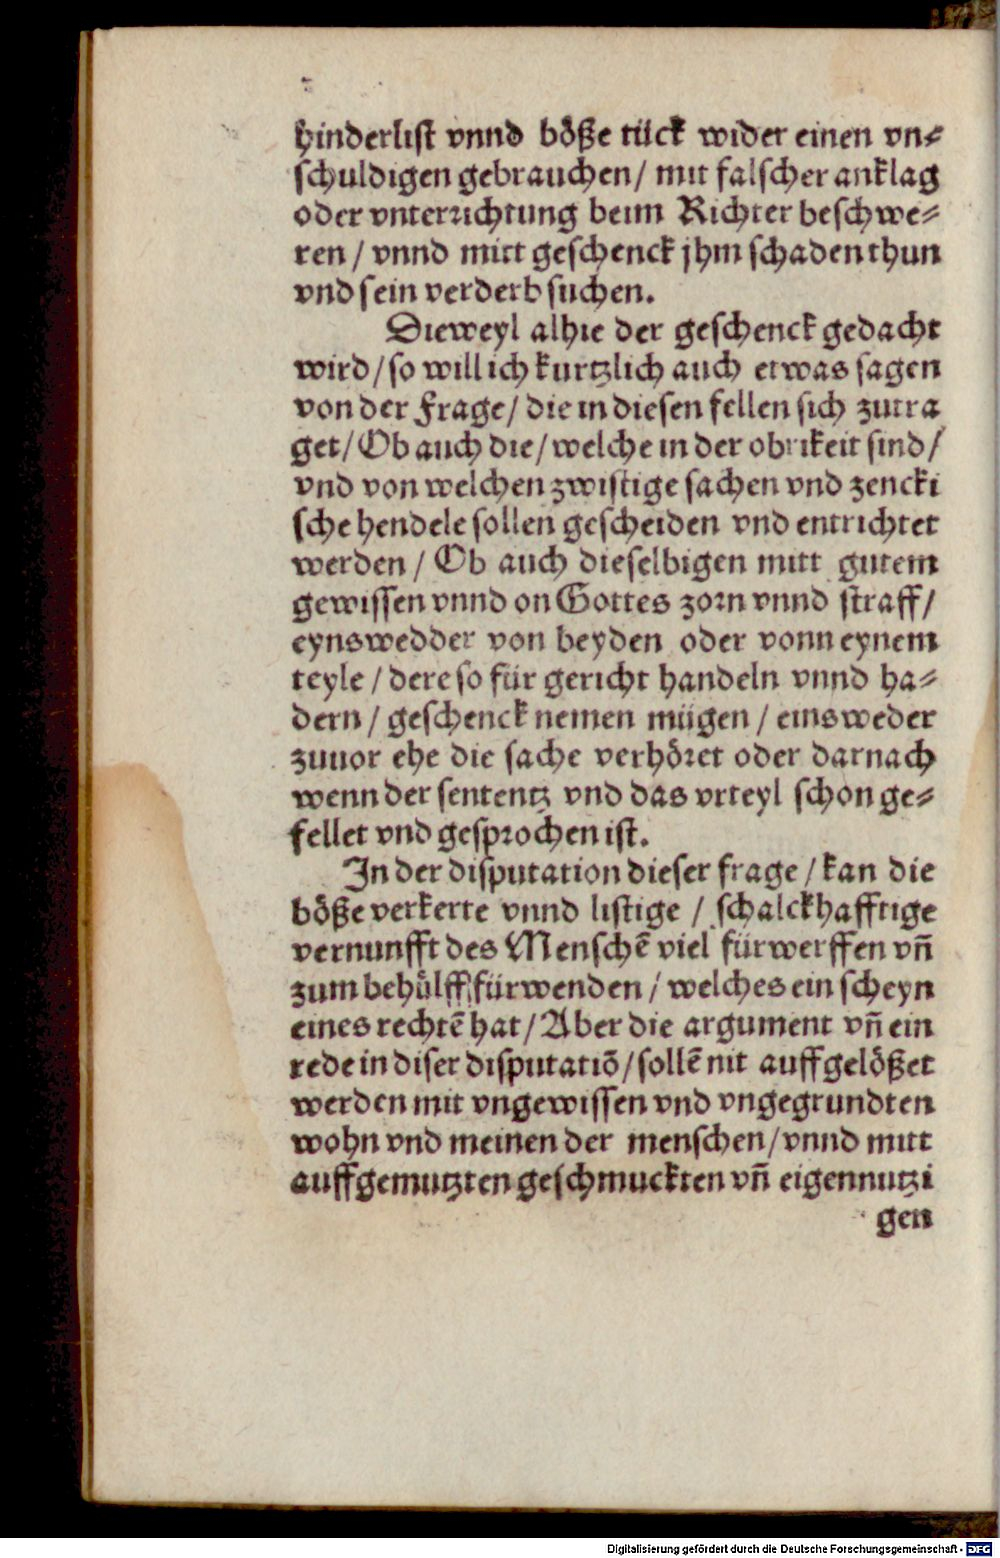 hinderlist vnnd böße tück wider einen vn⸗
schuldigen gebrauchen/ mit falscher anklag
oder vnterrichtung beim Richter beschwe⸗
ren / vnnd mitt geschenck jhm schaden thun
vnd sein verderb suchen.
Dieweyl alhie der geschenck gedacht
wird/ so will ich kurtzlich auch etwas sagen
von der Frage/ die in diesen fellen sich zutra
get/ Ob auch die/ welche in der obrikeit sind/
vnd von welchen zwistige sachen vnd zencki
sche hendele sollen gescheiden vnd entrichtet
werden / Ob auch dieselbigen mitt gutem
gewissen vnnd on Gottes zorn vnnd straff/
eynswedder von beyden oder vonn eynem
teyle / dere so für gericht handeln vnnd ha⸗
dern / geschenck nemen mügen / einsweder
zuuor ehe die sache verhöret oder darnach
wenn der sententz vnd das vrteyl schon ge⸗
fellet vnd gesprochen ist.
In der disputation dieser frage / kan die
böße verkerte vnnd listige / schalckhafftige
vernunfft des Menschē viel fürwerffen vñ
zum behülff fürwenden / welches ein scheyn
eines rechtē hat / Aber die argument vñ ein
rede in diser disputatiō/ sollē nit auffgelößet
werden mit vngewissen vnd vngegrundten
wohn vnd meinen der menschen/ vnnd mitt
auffgemutzten geschmuckten vñ eigennutzi
gen
Digitalisierung gefördert durch die Deutsche Forschungsgemeinschaft - DFG